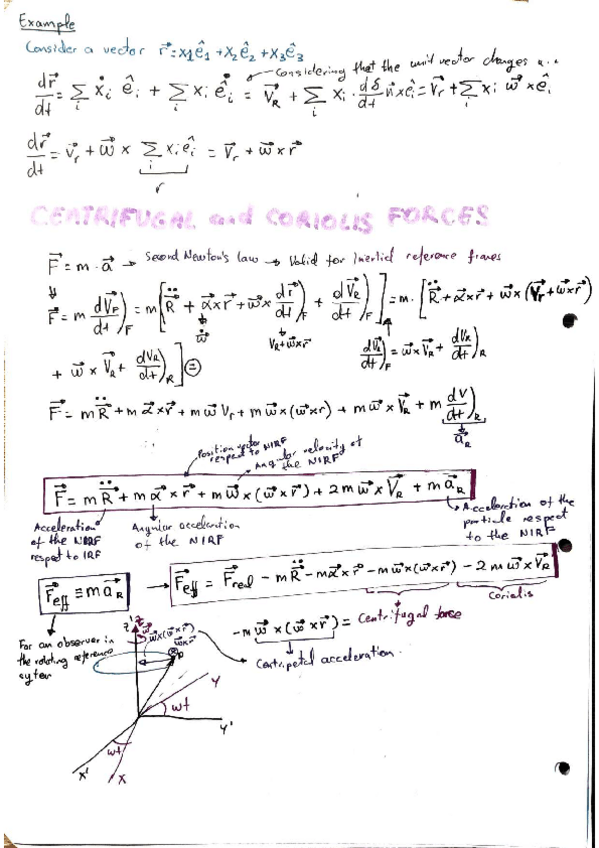 Example
Consider a vector r⃗ = x₁ê₁ + x₂ê₂ + x₃ê₃
dr⃗/dt = Σᵢ ẋᵢ êᵢ + Σᵢ xᵢ ê̇ᵢ = V⃗_R + Σᵢ xᵢ · dδ/dt n̂×êᵢ = V⃗r + Σᵢ xᵢ ω⃗×êᵢ
Considering that the unit vector changes ...
dr⃗/dt = V⃗r + ω⃗ × Σᵢ xᵢêᵢ = V⃗r + ω⃗×r⃗
r
CENTRIFUGAL and CORIOLIS FORCES
F⃗ = m·a⃗ → Second Newton's law → Valid for Inertial reference frames
F⃗ = m dV⃗F/dt)_F = m[R̈⃗ + α⃗×r⃗ + ω⃗× dr⃗/dt)_F + dV⃗R/dt)_F] = m·[R̈⃗ + α⃗×r⃗ + ω⃗×(V⃗r + ω⃗×r⃗)
ω̇⃗
V_R+ω⃗×r⃗
dV⃗R/dt)_F = ω⃗×V⃗_R + dV_R/dt)_R
+ ω⃗ × V⃗_R + dV_R/dt)_R] =
F⃗ = mR̈⃗ + mα⃗×r⃗ + mω⃗Vr + mω⃗×(ω⃗×r) + mω⃗×V⃗_R + m dV/dt)_R
a⃗_R
Position vector respect to NIRF
Angular velocity of the NIRF
F⃗ = mR̈⃗ + mα⃗×r⃗ + mω⃗×(ω⃗×r⃗) + 2mω⃗×V⃗_R + ma⃗_R
Acceleration of the NIRF respect to IRF
Angular acceleration of the NIRF
Acceleration of the particle respect to the NIRF
F⃗eff ≡ ma⃗_R → F⃗eff = F⃗real − mR̈⃗ − mα⃗×r⃗ − mω⃗×(ω⃗×r⃗) − 2mω⃗×V⃗_R
Coriolis
For an observer in the rotating reference sytem
−mω⃗×(ω⃗×r⃗) = Centrifugal force
Centripetal acceleration.
z' z
ω⃗
ω⃗×(ω⃗×r⃗)
ω⃗×r⃗
P
y
ωt
y'
ωt
x' x